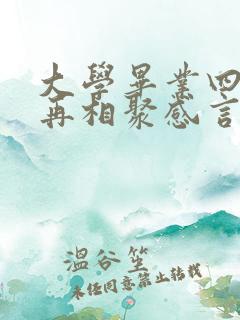 大學畢業四
再相聚感言
溫谷笙
未經同意禁止轉載